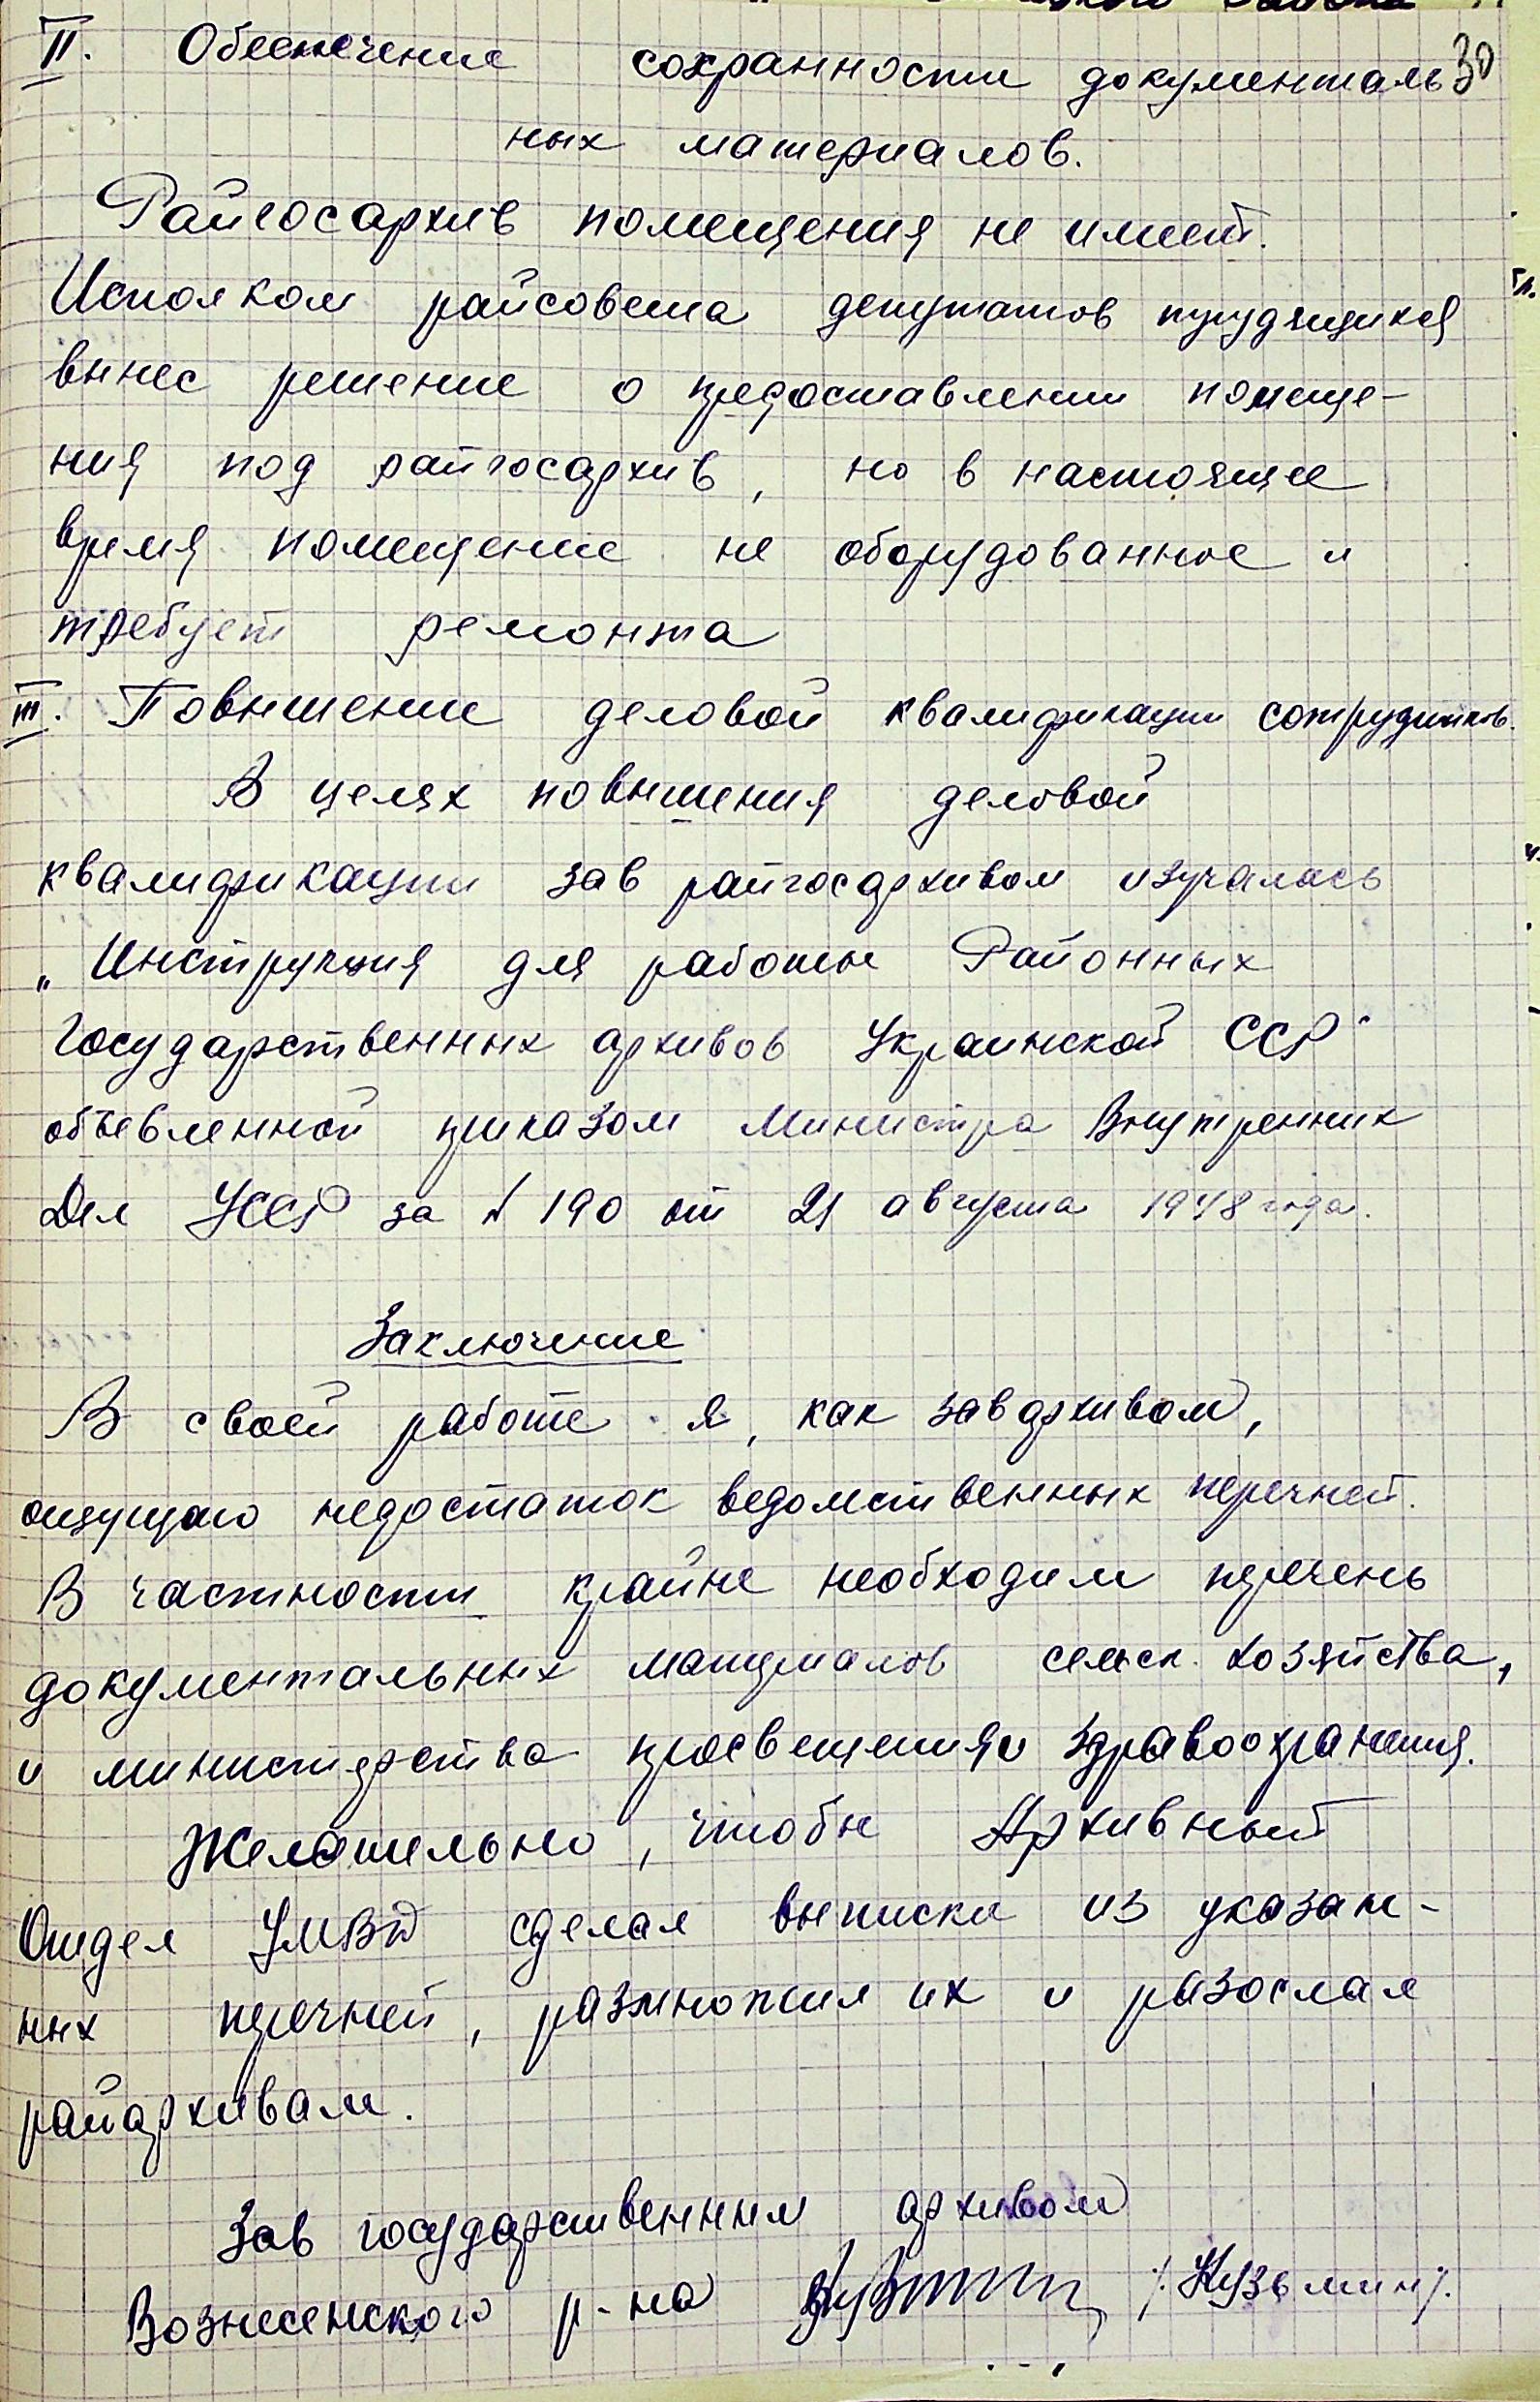 30
II. Обеспечение сохранности документаль
ных материалов.
Райгосархив помещения не имеет.
Исполком райсовета депутатов трудящихся
вынес решение о предоставлении помеще-
ния под райгосархив, но в настоящее
время помещение не оборудованное и
требует ремонта
III. Повышение деловой квалификации сотрудников.
В целях повышения деловой
квалификации зав райгосархивом изучалась
„Инструкция для работы Районных
Государственных архивов Украинской ССР"
объевленной приказом Министра Внутренних
Дел УССР за № 190 от 21 августа 1948 года.
Заключение
В своей работе я, как завархивом,
ощущаю недостаток ведомственных перечней.
В частности крайне необходим перечень
документальных материалов сельск. хозяйства,
и министерства просвещения и здравоохранения.
Желательно, чтобы Архивный
Отдел УМВД сделал выписки из указан-
ных перечней, размножил их и разослал
райархивам.
Зав государственным архивом
Вознесенского р-на /Кузьмин/.